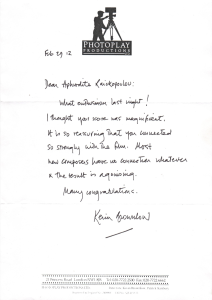 PHOTOPLAY
PRODUCTIONS
Feb 29. 12
Dear Aphrodite Raickopoulou:
What endurance last night!
I thought your score was magnificent.
It is so reassuring that you connected
so strongly with the film. Most
new composers have no connection whatever
& the result is agonising.
Many congratulations.
Kevin Brownlow